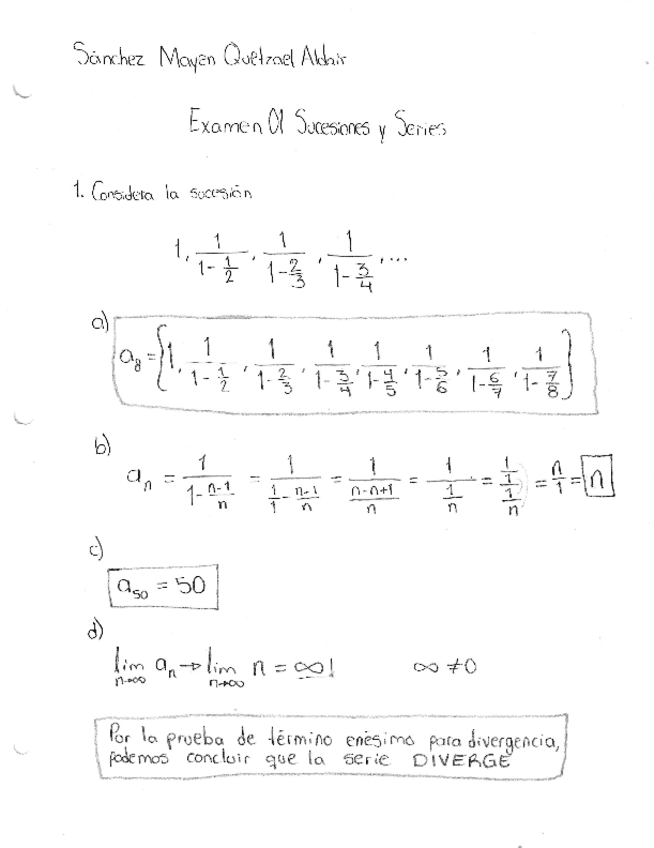 Sánchez Mayen Quetzael Aldair
Examen 01 Sucesiones y Series
1. Considera la sucesión
1, 1/(1-1/2), 1/(1-2/3), 1/(1-3/4), ...
a)
a₈ = {1, 1/(1-1/2), 1/(1-2/3), 1/(1-3/4), 1/(1-4/5), 1/(1-5/6), 1/(1-6/7), 1/(1-7/8)}
b)
aₙ = 1/(1-(n-1)/n) = 1/(1/1-(n-1)/n) = 1/((n-n+1)/n) = 1/(1/n) = (1/1)/(1/n) = n/1 = n
c)
a₅₀ = 50
d)
lim n→∞ aₙ → lim n→∞ n = ∞! ∞ ≠ 0
Por la prueba de término enésimo para divergencia,
podemos concluir que la serie DIVERGE